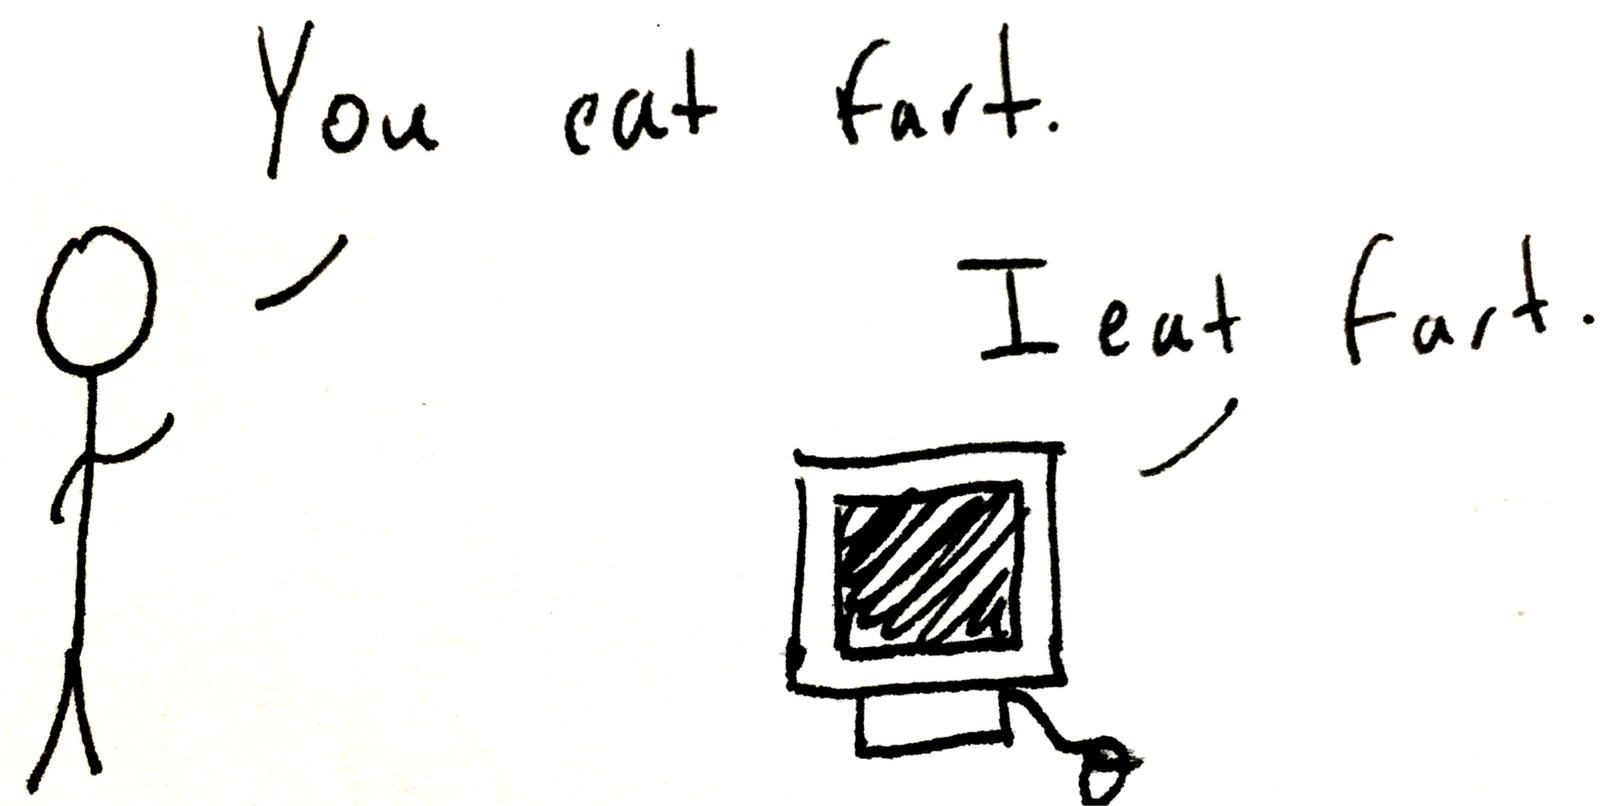 You eat fart.
I eat fart.